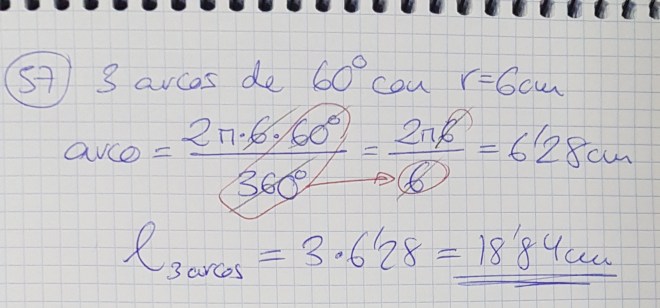 57 3 arcos de 60° con r=6cm
arco = 2π·6·60° / 360° = 2π6 / 6 = 6'28cm
l 3 arcos = 3·6'28 = 18'84cm